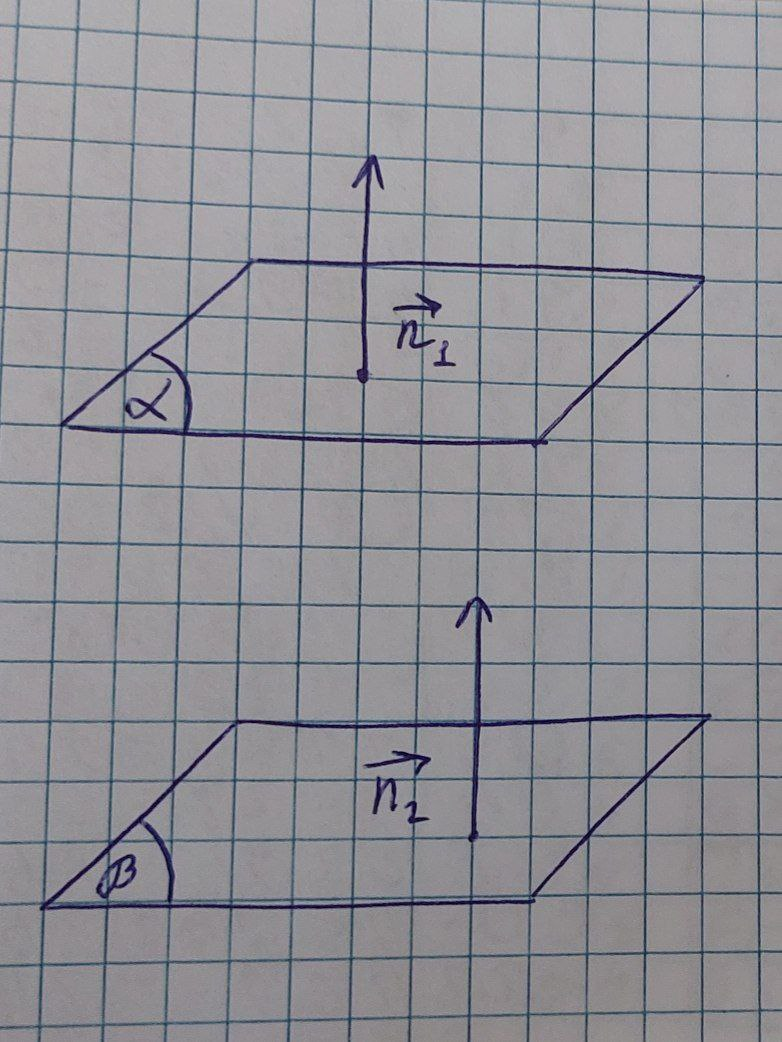 n⃗₁
α
n⃗₂
β